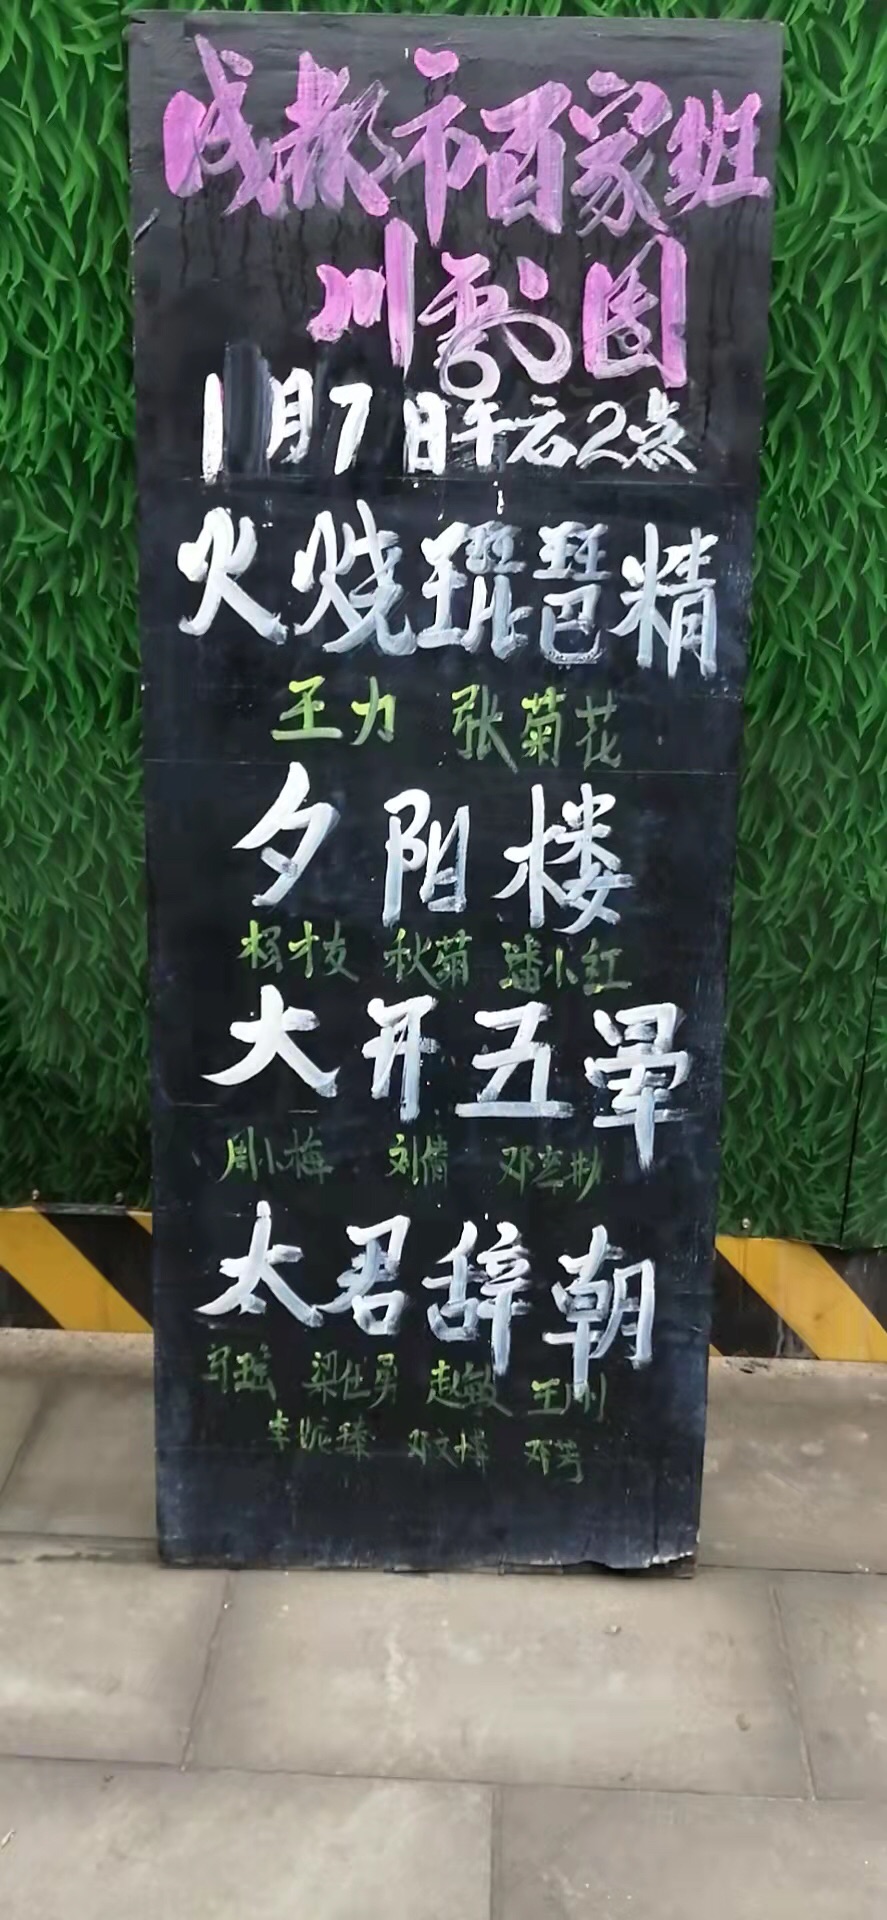 成都市百家班
川剧团
1月7日午后2点
火烧琵琶精
王力 张菊花
夕阳楼
杨才友 秋菊 潘小红
大开五荤
周小梅 刘倩
太君辞朝
马瑶 梁仕勇 赵敏 王刚
邓文博 邓芳